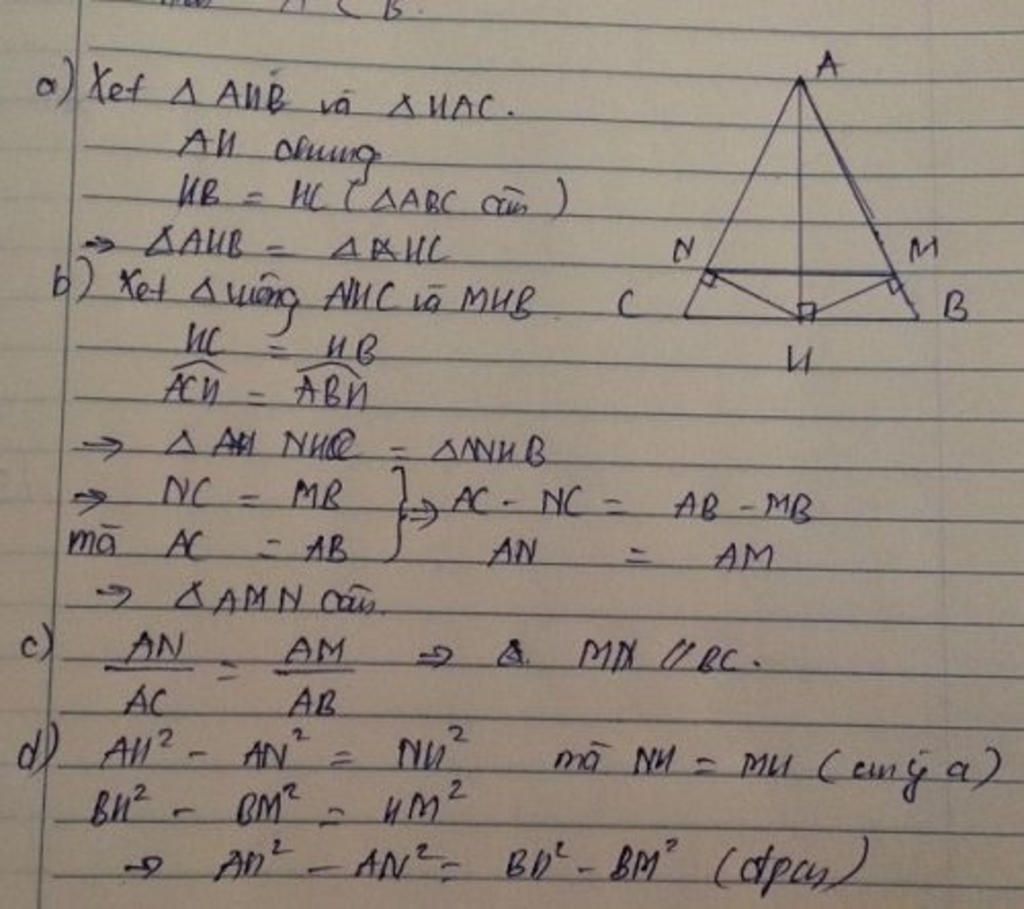 A C B.
a) Xét △ AHB và △HAC.
AH chung
HB = HC (△ABC cân)
⇒ △AHB = △AHC
b) Xét △ vuông NHC và MHB
HC = HB
ACH = ABH
⇒ △ NHC = △MHB
⇒ NC = MB } ⇒ AC - NC = AB - MB
mà AC = AB AN = AM
⇒ △AMN cân.
c) AN/AC = AM/AB ⇒ MN // BC.
d) AH² - AN² = NH² mà NH = MH (cm ý a)
BH² - BM² = HM²
⇒ AH² - AN² = BH² - BM² (đpcm)
A
N
M
C
B
H